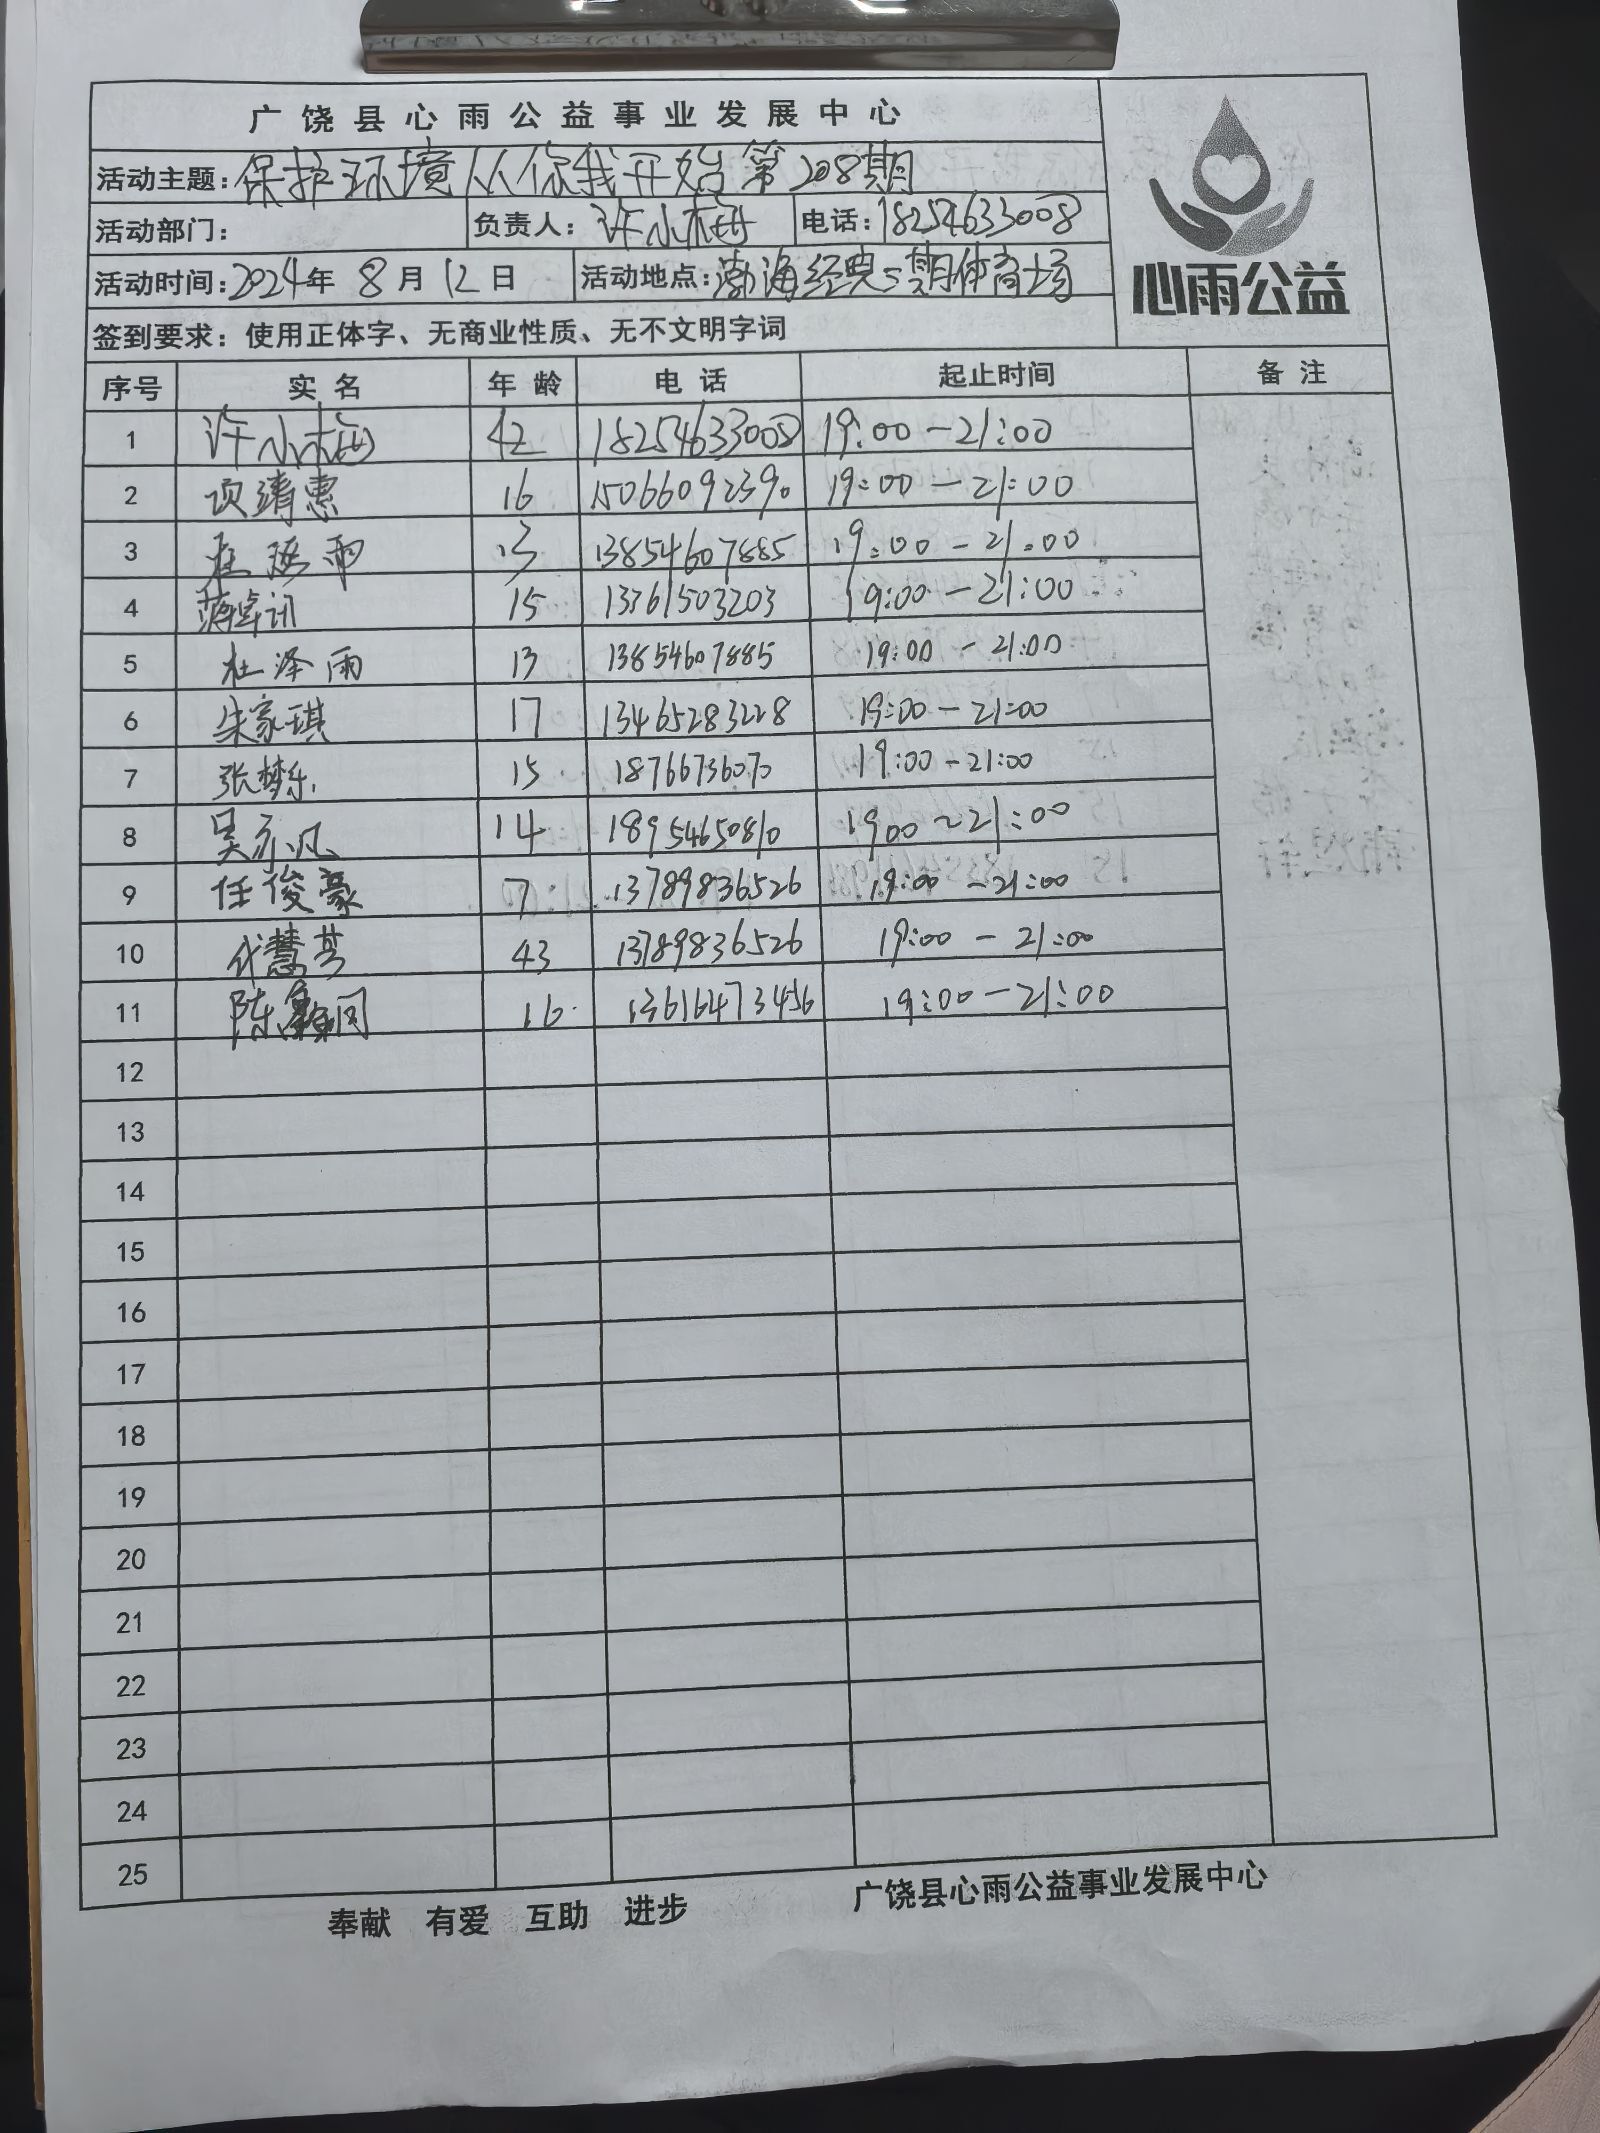 广饶县心雨公益事业发展中心
活动主题：保护环境从你我开始 第208期
活动部门： 负责人：许小梅 电话：18254633008
活动时间：2024年 8 月 12 日 活动地点：渤海经典 期体育广场
心雨公益
签到要求：使用正体字、无商业性质、无不文明字词
序号 实名 年龄 电话 起止时间 备注
1 许小梅 42 18254633008 19:00-21:00
2 项靖惠 16 15066092390 19:00-21:00
3 杜 雨 13 13854607885 19:00-21:00
4 薄卓讯 15 13361503203 19:00-21:00
5 杜泽雨 13 13854607885 19:00-21:00
6 朱家琪 17 13465283228 19:00-21:00
7 张梦乐 15 18766736070 19:00-21:00
8 吴亦凡 14 18954650810 1900~21:00
9 任俊豪 7 13789836526 19:00-21:00
10 代慧芳 43 13789836526 19:00-21:00
11 陈 同 16 13616473456 19:00-21:00
12
13
14
15
16
17
18
19
20
21
22
23
24
25
奉献 有爱 互助 进步 广饶县心雨公益事业发展中心